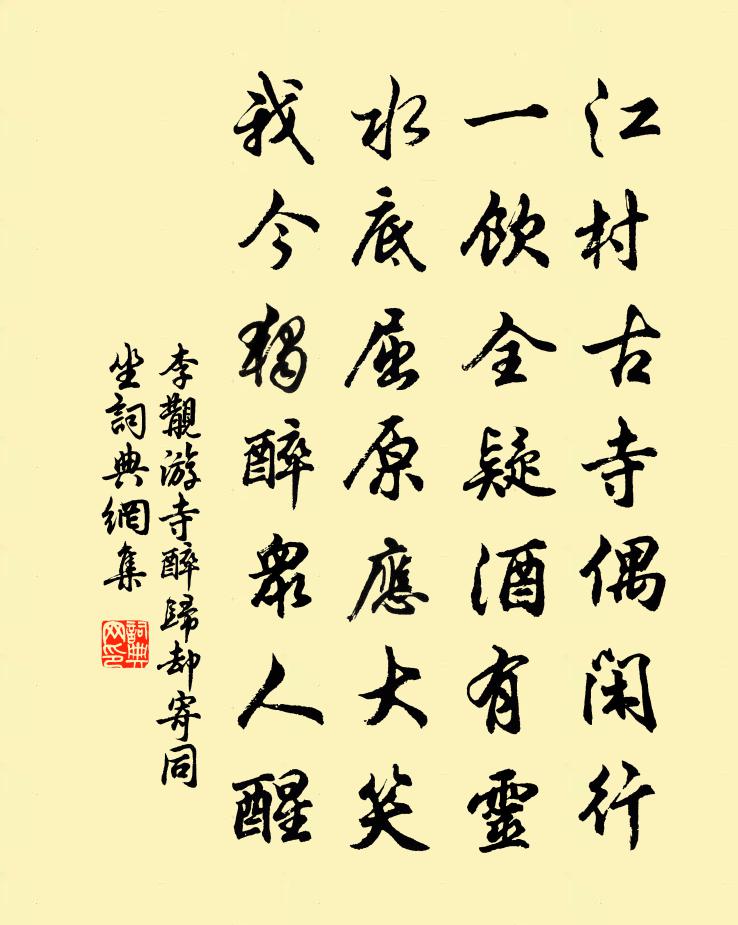 江村古寺偶閑行
一飲全疑酒有靈
水底屈原應大笑
我今獨醉衆人醒
李覯游寺醉歸却寄同
坐詞典網集
詞典网印